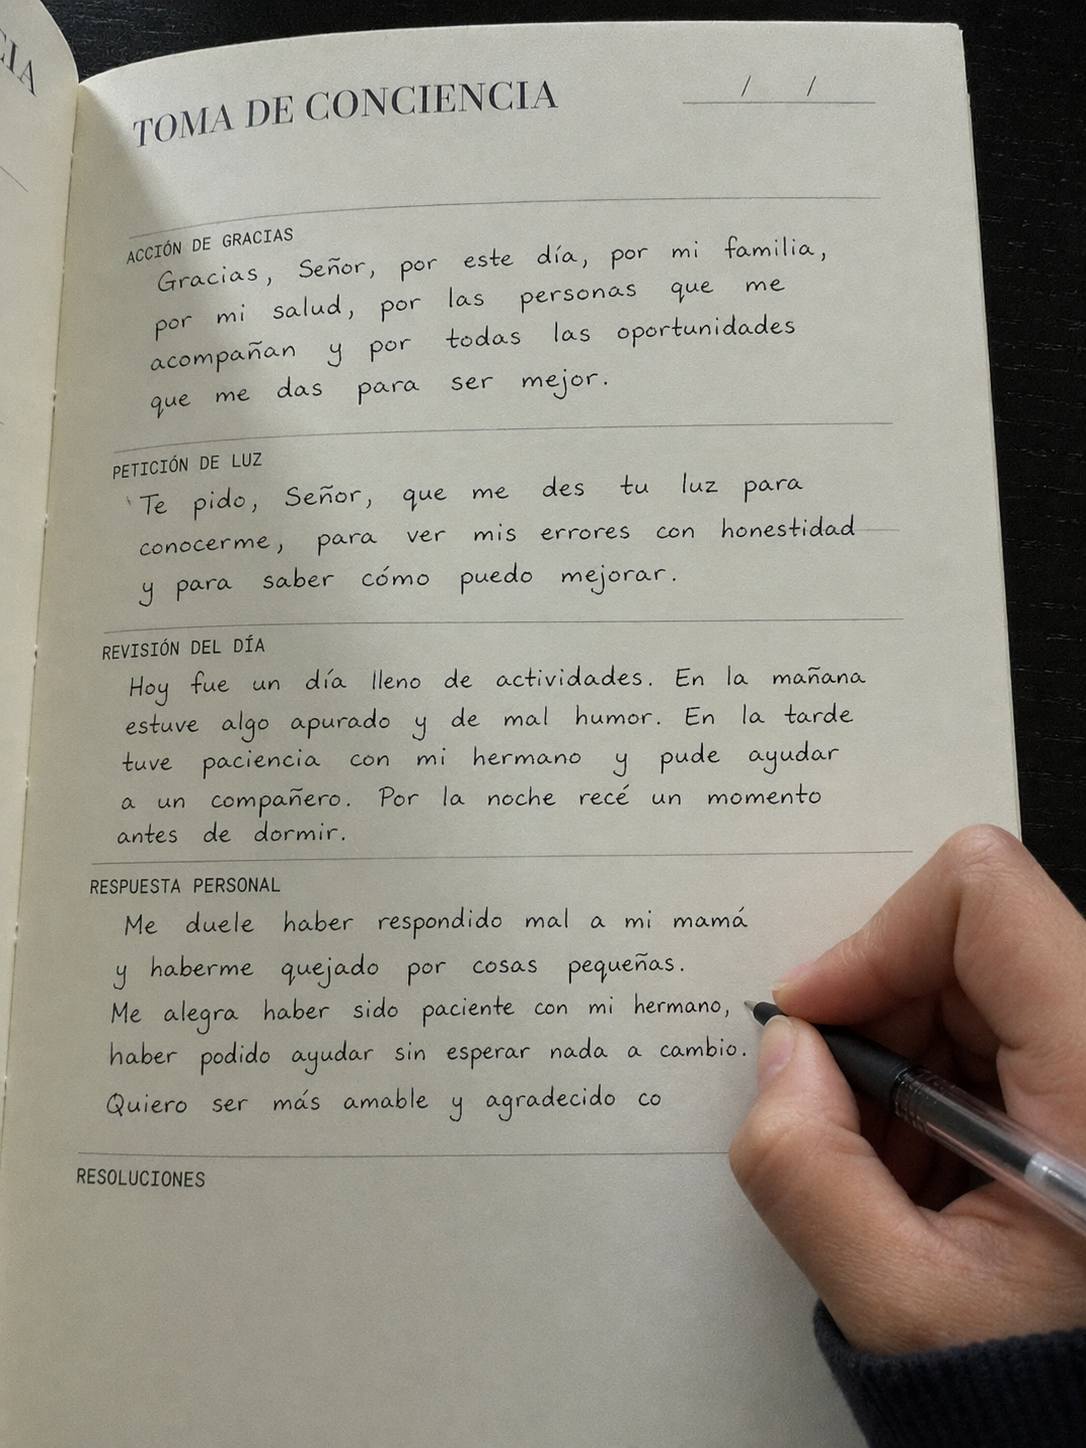 CIA
TOMA DE CONCIENCIA
/ /
ACCIÓN DE GRACIAS
Gracias, Señor, por este día, por mi familia,
por mi salud, por las personas que me
acompañan y por todas las oportunidades
que me das para ser mejor.
PETICIÓN DE LUZ
Te pido, Señor, que me des tu luz para
conocerme, para ver mis errores con honestidad
y para saber cómo puedo mejorar.
REVISIÓN DEL DÍA
Hoy fue un día lleno de actividades. En la mañana
estuve algo apurado y de mal humor. En la tarde
tuve paciencia con mi hermano y pude ayudar
a un compañero. Por la noche recé un momento
antes de dormir.
RESPUESTA PERSONAL
Me duele haber respondido mal a mi mamá
y haberme quejado por cosas pequeñas.
Me alegra haber sido paciente con mi hermano,
haber podido ayudar sin esperar nada a cambio.
Quiero ser más amable y agradecido co
RESOLUCIONES